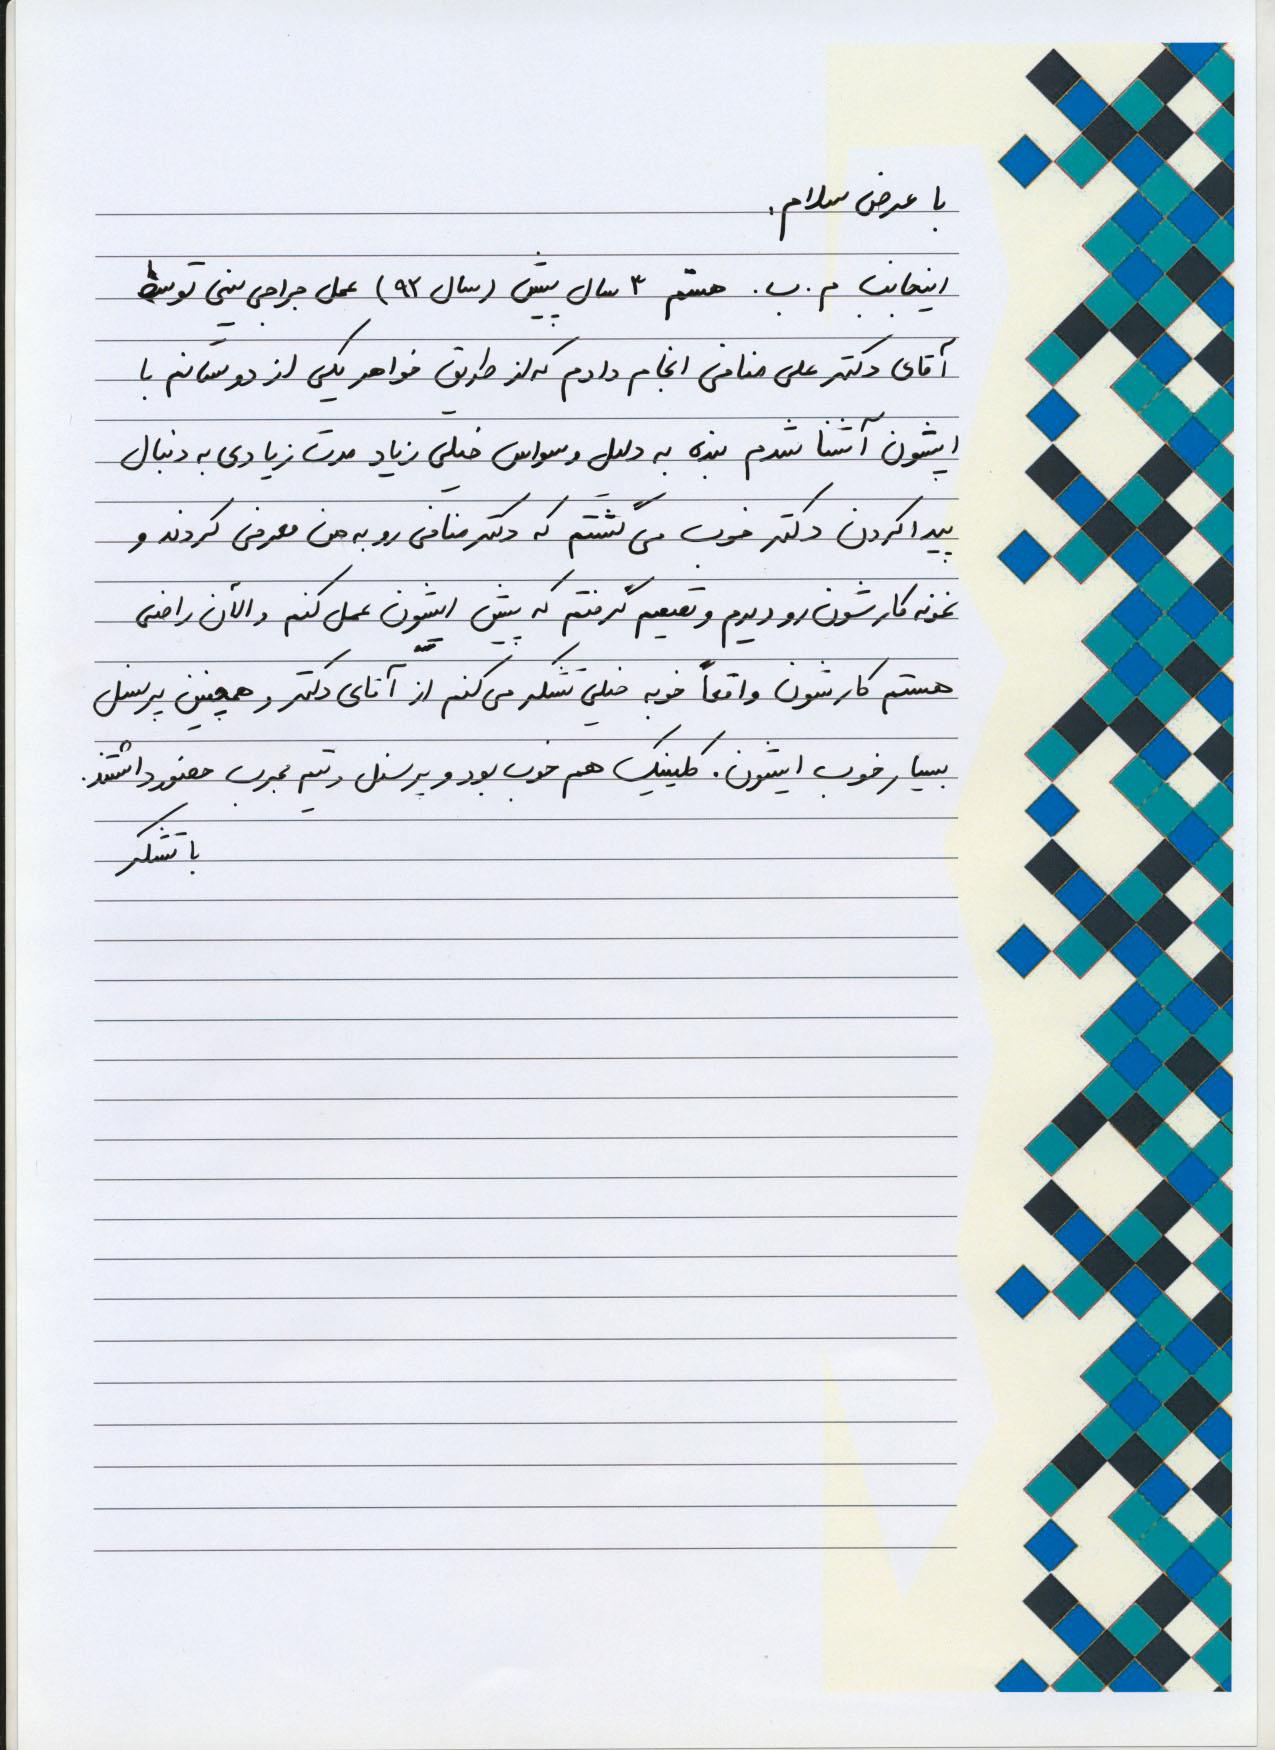 با عرض سلام.
اینجانب م . ب . هستم ۳ سال پیش (سال ۹۲) عمل جراحی بینی توسط
آقای دکتر علی منافی انجام دادم که از طریق خواهر یکی از دوستانم با
ایشون آشنا شدم بنده به دلیل وسواس خیلی زیاد مدت زیادی به دنبال
پیدا کردن دکتر خوب می گشتم که دکتر منافی رو به من معرفی کردند و
نمونه کارشون رو دیدم و تصمیم گرفتم که پیش ایشون عمل کنم و الآن راضی
هستم کارشون واقعاً خوبه خیلی تشکر می کنم از آقای دکتر و همچنین پرسنل
بسیار خوب ایشون. کلینیک هم خوب بود و پرسنل و تیم مجرب حضور داشتند.
با تشکر